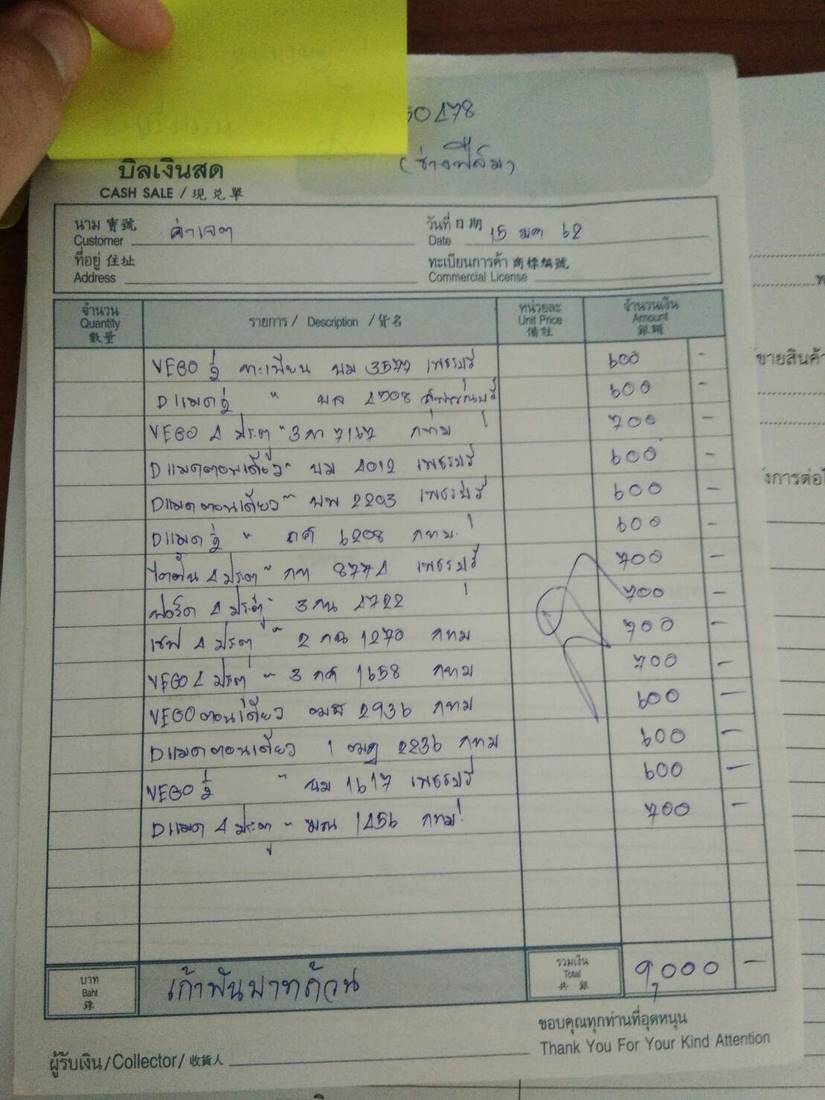 50478
(ช่างฟิล์ม)
บิลเงินสด
CASH SALE / 現兌單
นาม 寶號 Customer
วันที่ 日期 Date 15 มค 62
ที่อยู่ 住址 Address
ทะเบียนการค้า 商標編號 Commercial License
จำนวน Quantity 數量 รายการ / Description / 貨名 หน่วยละ Unit Price 備註 จำนวนเงิน Amount 銀碼
VEGO คู่ ทะเบียน บม 3577 เพชรบุรี 600 -
Dแมคคู่ " 600 -
VEGO 4 ประตู " 3กา 7167 กทม 700 -
Dแมคตอนเดียว " บม 4012 เพชรบุรี 600 -
Dแมคตอนเดียว " บพ 2203 เพชรบุรี 600 -
Dแมคคู่ " ถศ 6208 กทม 600 -
ไตตัน 4 ประตู " กท 8774 เพชรบุรี 700 -
ฟอร์ด 4 ประตู " 3กน 4722 700 -
เชฟ 4 ประตู " 2 กฉ 1270 กทม 700 -
VEGO 4 ประตู " 3 กศ 1658 กทม 700 -
VEGO ตอนเดียว 2936 กทม 600 -
Dแมคตอนเดียว 1 ฒฎ 2236 กทม 600 -
VEGO คู่ " บม 1617 เพชรบุรี 600 -
Dแมค 4 ประตู " 1456 กทม 700 -
บาท Baht เก้าพันบาทถ้วน รวมเงิน Total 9,000 -
ขอบคุณทุกท่านที่อุดหนุน
ผู้รับเงิน/Collector/收貨人 Thank You For Your Kind Attention